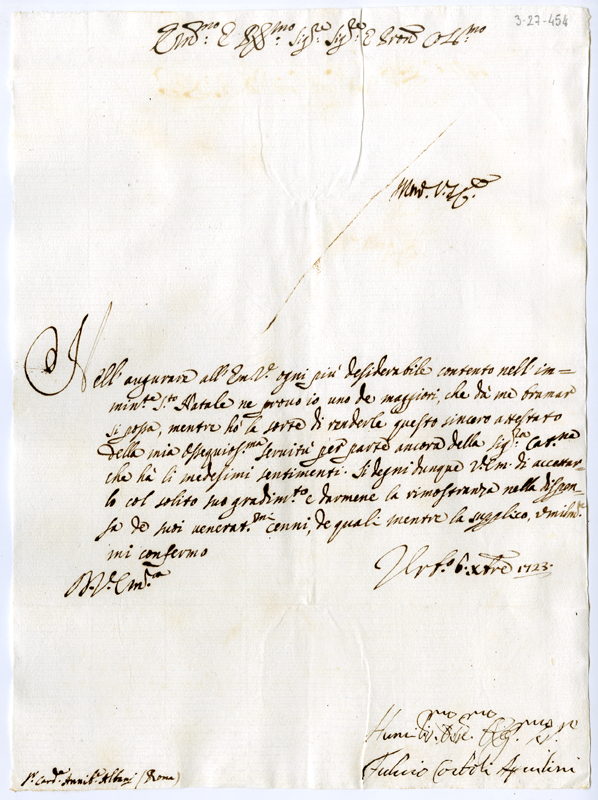 3-27-454
Em.mo E R.mo Sig.re Sig.re E Pron Col.mo
Nell' augurare all' Em.V. ogni più desiderabile contento nell' im=
min.te S.to Natale ne provo io uno de maggiori, che da me bramar
si possa, mentre hò la sorte di renderle questo sincero attestato
della mia osequios.ma servitù per parte ancora della Sig.ra Cat.na
che hà li medesimi sentimenti. Si degni dunque V.Em. di accettar=
lo col solito suo gradim.to e darmene la rimostranza nella dispen=
sa de suoi venerat.mi cenni, de quali mentre la supplico, umilm.e
mi confermo
D. V. Em.za
Urb.o 6. Xbre 1723.
Humil.mo
Fulvio Corboli Aquilini
P. Card. Annib. Albani (Roma)